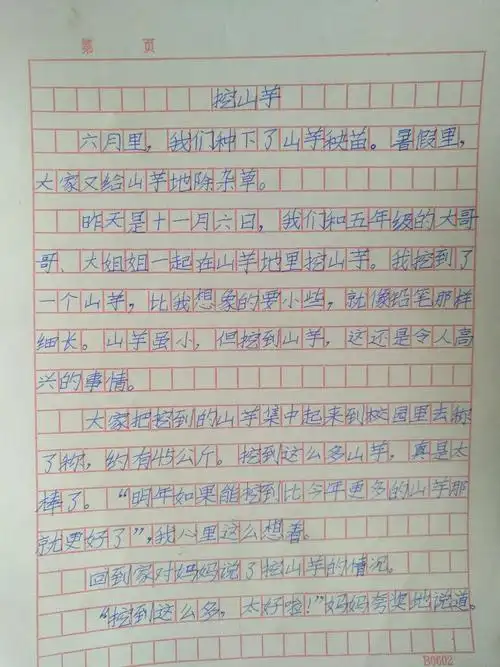 第 页
挖山芋
六月里，我们种下了山芋秧苗。暑假里，
大家又给山芋地除杂草。
昨天是十一月六日，我们和五年级的大哥
哥、大姐姐一起在山芋地里挖山芋。我挖到了
一个山芋，比我想象的要小些，就像铅笔那样
细长。山芋虽小，但挖到山芋，这还是令人高
兴的事情。
大家把挖到的山芋集中起来到校园里去称
了称，约有45公斤。挖到这么多山芋，真是太
棒了。“明年如果能挖到比今年更多的山芋那
就更好了”，我心里这么想着。
回到家对妈妈说了挖山芋的情况。
“挖到这么多，太好啦！”妈妈夸奖地说道。
B0002